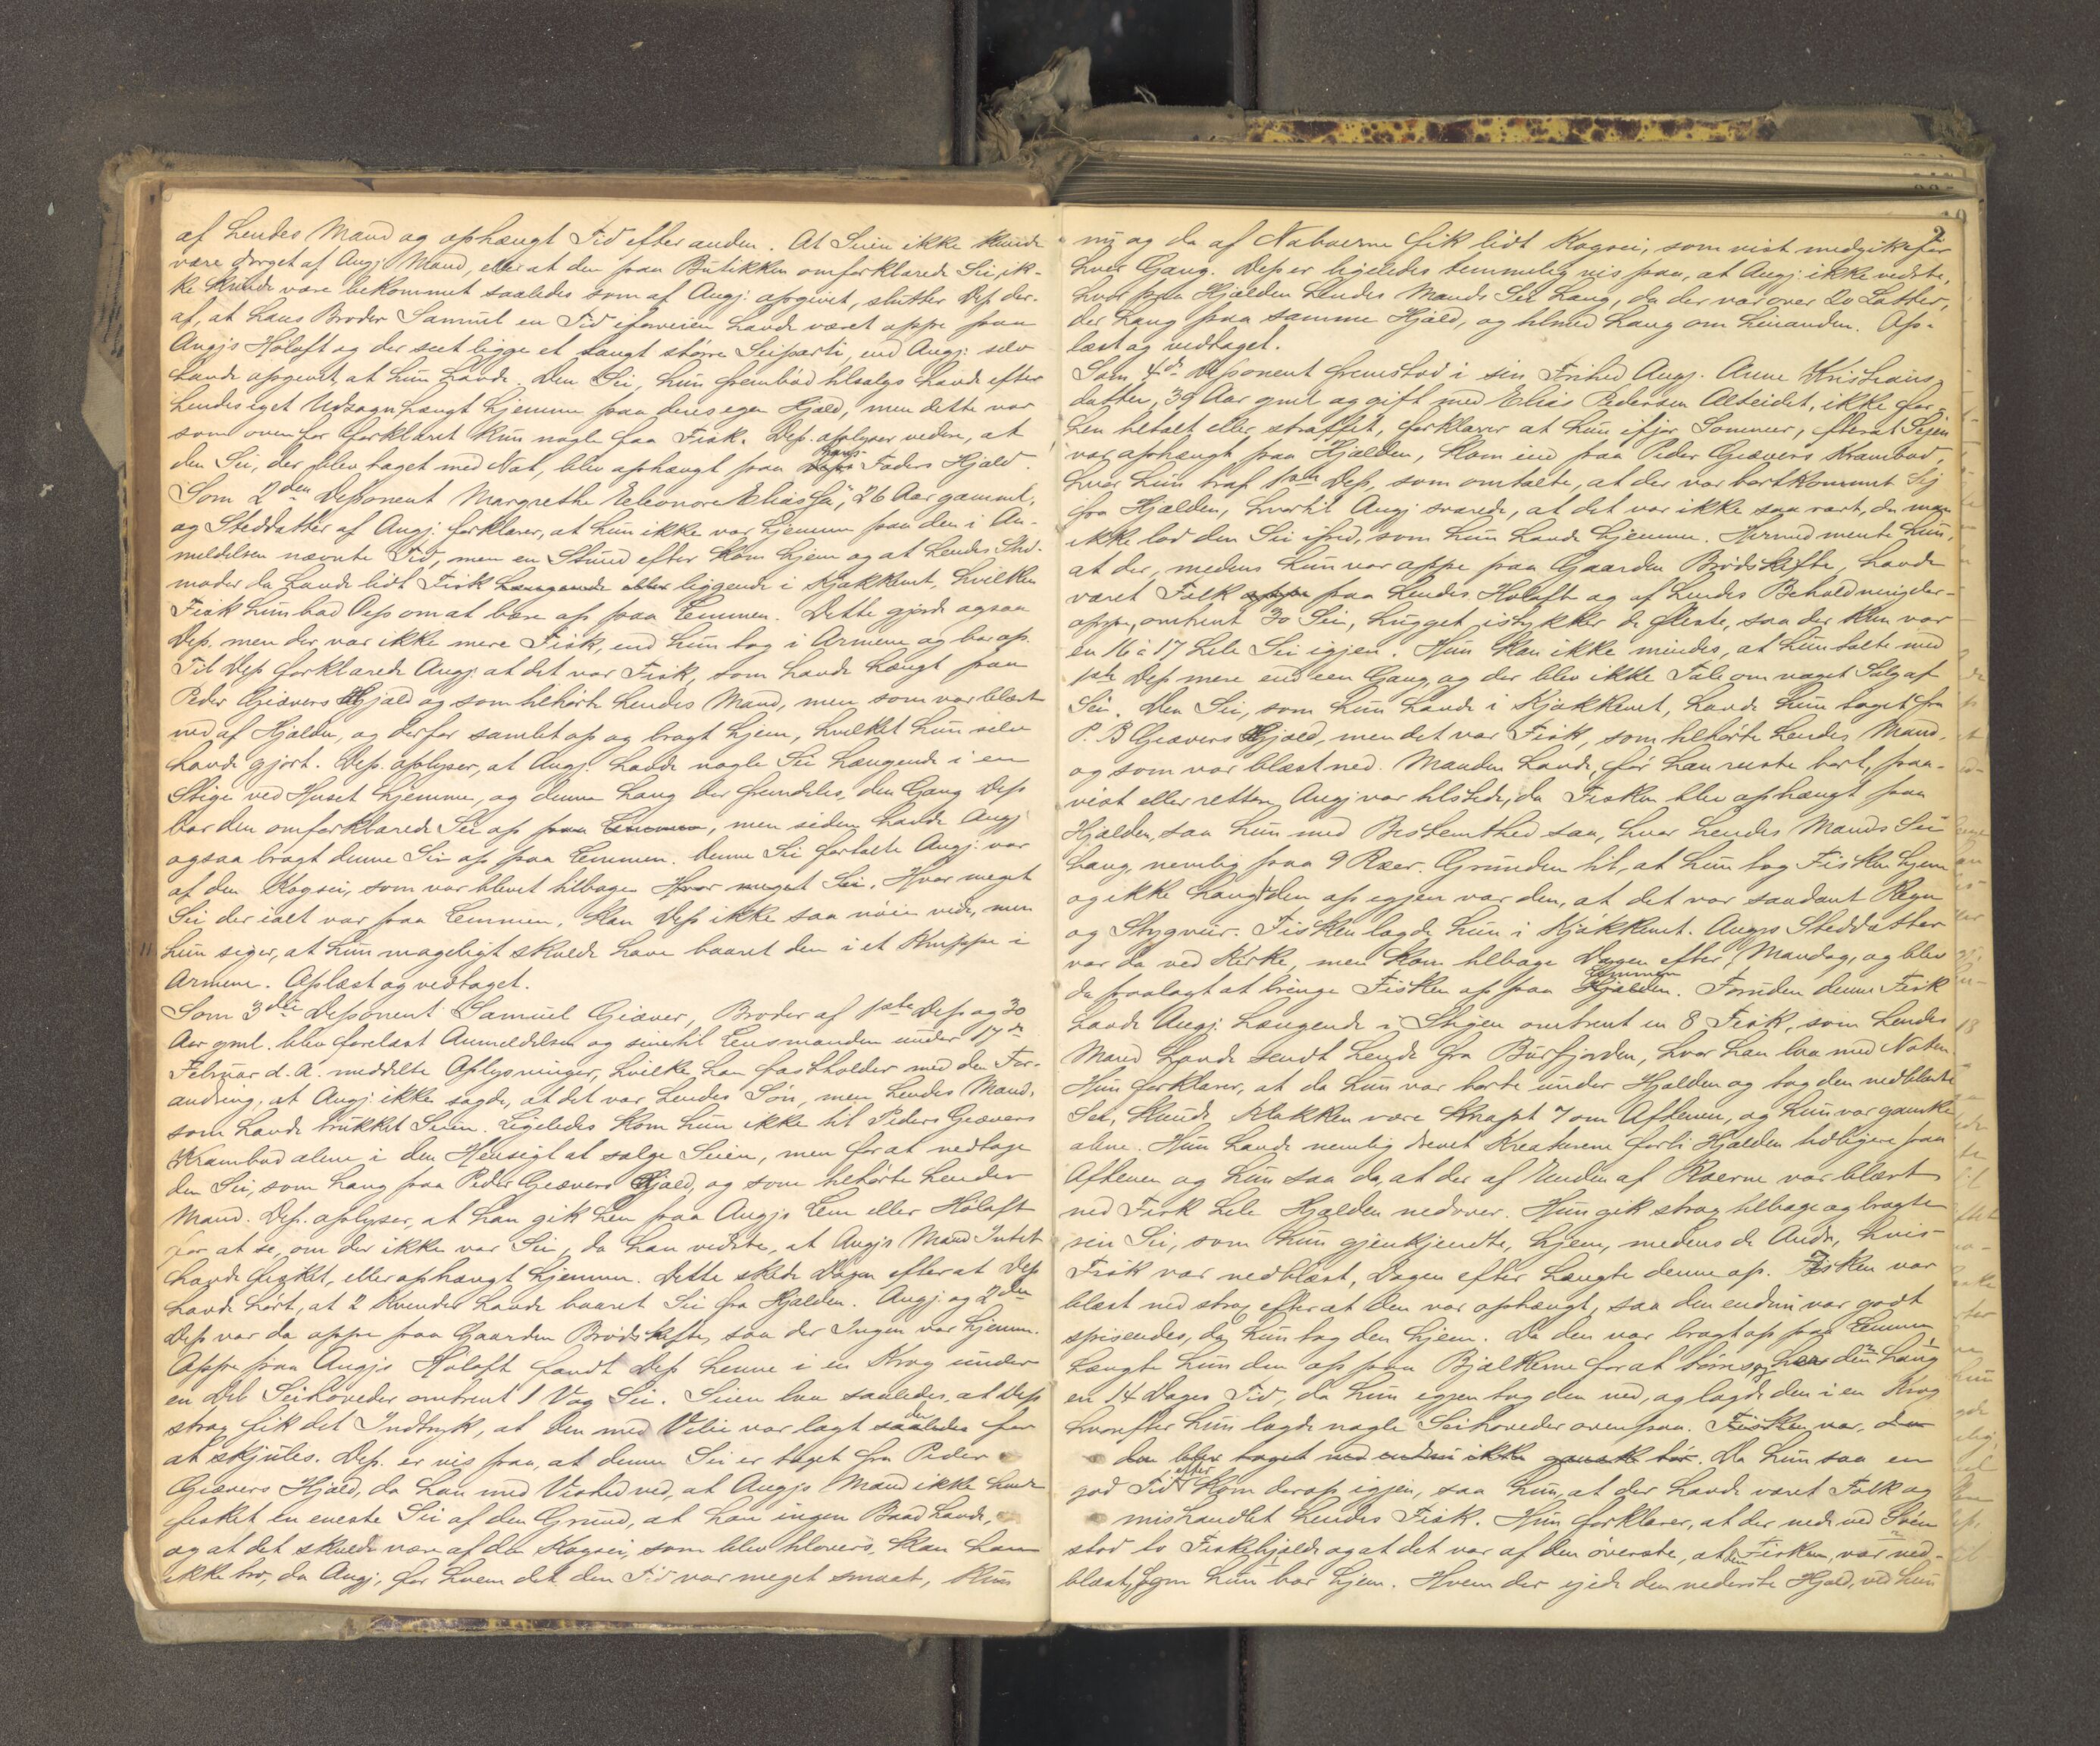 af hendes Mand og ophængt Tid efter anden. At Seien ikke kunde
være dorget af Angj: Mand, eller at den paa Butikken omforklarede Sei ik-
ke kunde være bekommet saaledes som af Angj: opgivet, slutter Dep. der-
af, at hans Broder Samuel en Tid iforveien havde været oppe paa
Angjs Høloft og der seet ligge et langt større Seiparti, end Angj: selv
havde opgivet, at hun havde. Den Sei, hun frembød tilsalgs havde efter
hendes eget Udsagn hængt hjemme paa deres egen Hjæld, men dette var
som ovenfor forklaret kun nogle faa Fisk. Dep. oplyser videre, at
den Sei, der blev taget med Not, blev ophængt paa hans Faders Hjæld.
Som 2den Deponent Margrethe Eleonore Eliasda., 26 Aar gammel,
og Steddatter af Angj: forklarer, at hun ikke var hjemme paa den i An-
meldelsen nævnte Tid, men en Stund efter kom hjem og at hendes Sted-
moder da havde lidt Fisk hængende eller liggende i Kjøkkenet, hvilken
Fisk hun bad Dep. om at bære op paa Lemmen. Dette gjorde ogsaa
Dep. men der var ikke mere Fisk, end hun tog i Armene og bar op.
Til Dep forklarede Angj: at det var Fisk, som havde hængt paa
Peder Giævers Hjæld og som tilhørte hendes Mand, men som var blæst
ned af Hjælden, og derfor samlet op og bragt hjem, hvilket hun selv
havde gjort. Dep. oplyser, at Angj: havde nogle Sei hængende i en
Stige ved Huset hjemme, og denne hang der fremdeles, den Gang Dep
bar den omforklarede Sei op paa Lemmen, men siden havde Angj
ogsaa bragt denne Sei op paa Lemmen. Denne Sei fortalte Angj: var
af den Kogsei, som var blevet tilbage. Hvor meget Sei. Hvor meget
Sei der ialt var paa Lemmen, kan Dep ikke saa nøie vide, men
hun siger, at hun mageligt skulde have baaret den i et Knippe i
Armene. Oplæst og vedtaget.
Som 3die Deponent Samuel Giæver, Broder af 1ste Dep og 30
Aar gml. blev forelæst Anmeldelsen og sine til Lensmanden under 17de
Februar d. A. meddelte Oplysninger, hvilke han fastholder med den For-
andring, at Angj: ikke sagde, at det var hendes Søn, men hendes Mand,
som havde trukket Seien. Ligeledes kom hun ikke til Peders Giævers
Krambod alene i den Hensigt at sælge Seien, men for at nedtage
den Sei, som hang paa Peder Giævers Hjæld, og som tilhørte hendes
Mand. Dep. oplyser, at han gik hen paa Angjs Lem eller Høloft
for at se, om der ikke var Sei, da han vidste, at Angjs Mand Intet
havde fisket, eller ophængt hjemme. Dette skede Dagen efter at Dep
havde hørt, at 2 Kvinder havde baaret Sei fra Hjælden. Angj: og 2den
Dep var da oppe paa Gaarden Brødskifte, saa der Ingen var hjemme.
Oppe paa Angjs Høloft fandt Dep henne i en Krog under
en Del Seihoveder omtrent 1 Vog Sei. Seien laa saaledes, at Dep
strax fik det Indtryk, at den med Vilie var lagt saaledes der for
at skjules. Dep. er vis paa, at denne Sei er taget fra Peder
Giævers Hjæld, da han med Vished ved, at Angjs Mand ikke havde
fisket en eneste Sei af den Grund, at han ingen Baad havde,
og at det skulde være af den Kogsei, som blev tilovers, kan han
ikke tro, da Angj, for hvem det den Tid var meget smaat, kun
2
nu og da af Naboerne fik lidt Kogsei, som vist medgik for
hver Gang. Dep er ligeledes temmelig vis paa, at Angj: ikke vidste,
hvor paa Hjælden hendes Mands Sei hang, da der var over 20 Lotter,
der hang paa samme Hjæld, og tilmed hang om hinanden. Op-
læst og vedtaget.
Som 4de Deponent fremstod i sin Frihed Angj. Anne Kristians-
datter, 39 Aar gml og gift med Elias Pedersen Alteidet, ikke før-
hen tiltalt eller straffet, forklarer at hun ifjor Sommer, efterat Seien
var ophængt paa Hjælden, kom ind paa Peder Giævers Krambod,
hvor hun traf 1ste Dep, som omtalte, at der var bortkommet Sej
fra Hjælden, hvortil Angj svarede, at det var ikke saa rart, da man
ikke lod den Sei ifred, som hun havde hjemme. Hermed mente hun,
at der, medens hun var oppe paa Gaarden Brødskifte, havde
været Folk oppe paa hendes Høloft og af hendes Beholdning der-
oppe, omtrent 30 Sei, hugget istykker de fleste, saa der kun var
en 16 à 17 hele Sei igjen. Hun kan ikke mindes, at hun talte med
1ste Dep mere end een Gang, og der blev ikke Tale om noget Salg af
Sei. Den Sei, som hun havde i Kjøkkenet, havde hun taget fra
P. B Giævers Hjæld, men det var Fisk, som tilhørte hendes Mand,
og som var blæst ned. Manden havde, før han reiste bort, paa-
vist eller rettere Angj var tilstede, da Fisken blev ophængt paa
Hjælden, saa hun med Bestemthed saa, hvor hendes Mands Sei
hang, nemlig paa 9 Ræer. Grunden til, at hun tog Fisken hjem
og ikke hængte den op igjen var den, at det var saadant Regn
og Stygveir. Fisken lagde hun i Kjøkkenet. Angjs Steddatter
var da ved Kirke, men kom tilbage Dagen efter, Mandag, og blev
da paalagt at bringe Fisken op paa Hjælden Lemmen. Foruden denne Fisk
havde Angj: hængende i Stigen omtrent en 8 Fisk, som hendes
Mand havde sendt hende fra Burfjorden, hvor han laa med Noten.
Hun forklarer, at da hun var borte under Hjælden og tog den nedblæste
Sei, kunde Klokken være knapt 7 om Aftenen, og hun var ganske
alene. Hun havde nemlig drevet Kreaturene forbi Hjælden tidligere paa
Aftenen og hun saa da, at der af Vinden af Ræerne var blæst
ned Fisk hele Hjælden nedover. Hun gik strax tilbage og bragte
sin Sei, som hun gjenkjendte, hjem, medens de Andre, hvis
Fisk var nedblæst, Dagen efter hængte denne op. Fisken var
blæst ned strax efter at den var ophængt, saa den endnu var godt
spisendes, da hun tog den hjem. Da den var bragt op paa Lemmen
hængte hun den op paa Bjælkerne for at tørres, og her den hang
en 14 Dages Tid, da hun igjen tog den ned, og lagde den i en Krog
hvorefter hun lagde nogle Seihoveder ovenpaa. Fisken var, da
den blev taget ned endnu ikke ganske tør. Da hun saa en
god Tid efter kom derop igjen, saa hun, at der havde været Folk og
mishandlet hendes Fisk. Hun forklarer, at der nede ved Søen
stod to Fiskehjælde og at det var af den øverste, at den Fisken, var ned-
blæst, som hun bar hjem. Hvem der ejede den nederste Hjæld, ved hun